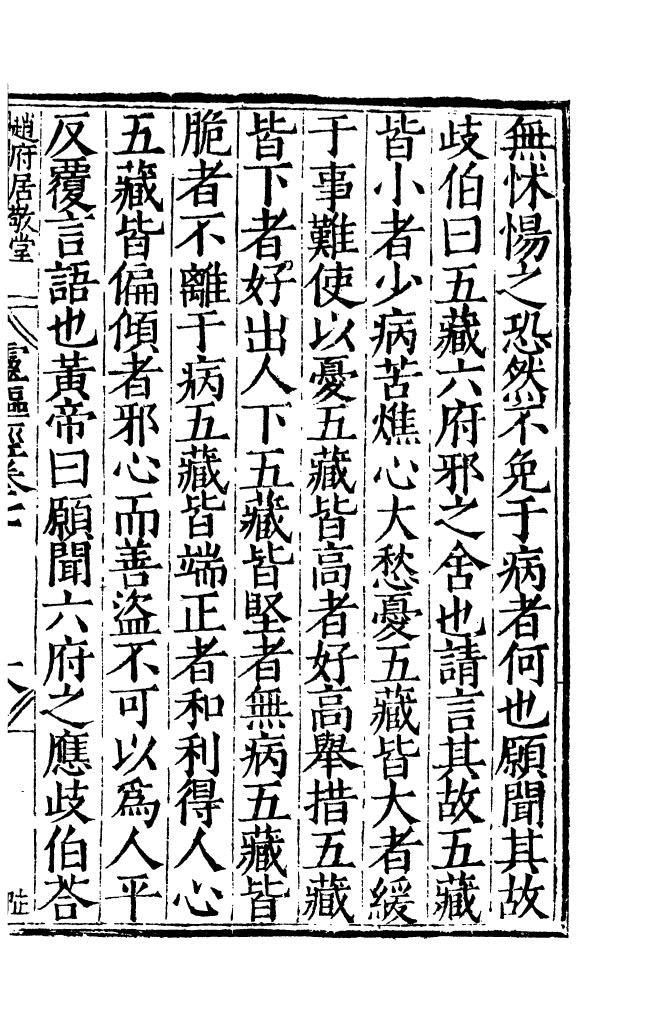 無怵惕之恐然不免于病者何也願聞其故
歧伯曰五藏六府邪之舍也請言其故五藏
皆小者少病苦燋心大愁憂五藏皆大者緩
于事難使以憂五藏皆高者好高舉措五藏
皆下者好出人下五藏皆堅者無病五藏皆
脆者不離于病五藏皆端正者和利得人心
五藏皆偏傾者邪心而善盜不可以爲人平
反覆言語也黃帝曰願聞六府之應歧伯荅
趙府居敬堂 靈樞經卷七